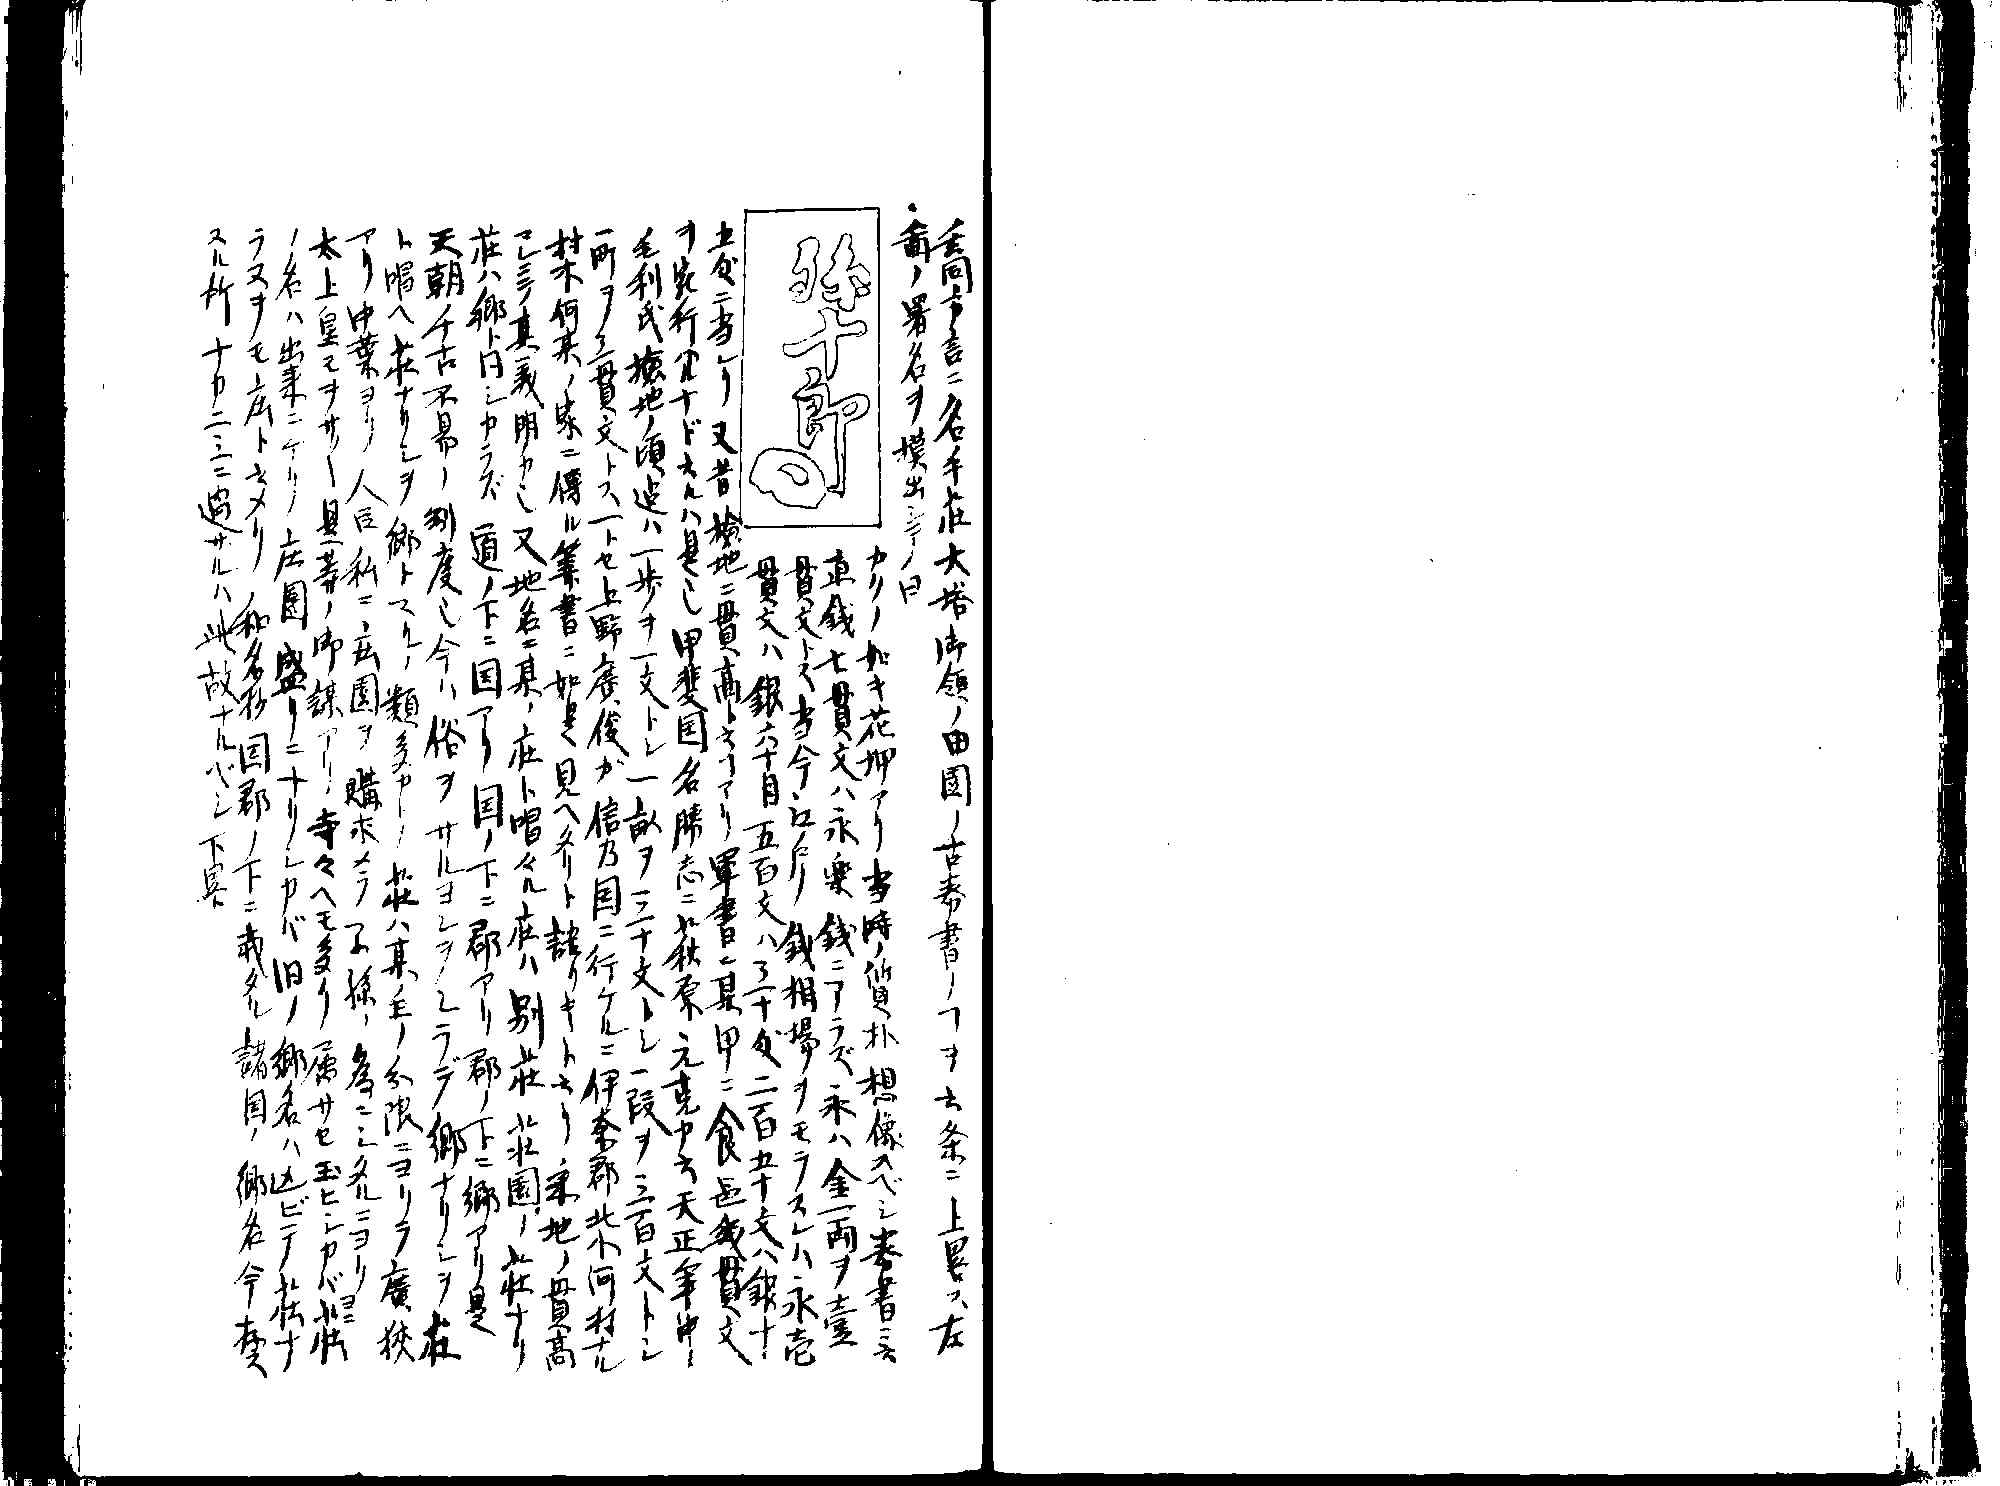 同書ニ名手荘大塔御領ノ田園ノ古券書ノヿヲ云条ニ上畧ス左
面ノ署名ヲ摸出シテノ曰
孫十郎
カリノ如キ花押アリ当時ノ質朴想像スベシ券書ニ云
京銭七貫文ハ永楽銭ニアラズ永ハ金一両ヲ壹
貫文トス当今江戸ノ銭相場ヲモラスレハ永壱
貫文ハ銀六十目五百文ハ三十匁二百五十文ハ銀十
五匁ニ当レリ又昔検地ニ貫高ト云フアリ軍書ニ某甲ニ食邑幾貫文
ヲ宛行フルナド云ルハ是也甲斐国名勝志ニ萩原元克カ云天正年中
毛利氏検地ノ頃迄ハ一歩ヲ一文トシ一畝ヲ三十文トシ一段ヲ三百文トシ
一町ヲ三貫文トス一トセ上野廣俊ガ信乃国ニ行ケルニ伊奈郡北小河村ナル
村木何某ノ家ニ傳ル筆書ニ如是見ヘタリト語リキト云リ采地ノ貫高
其義明カ也又地名ニ某ノ庄ト唱タル庄ハ別荘荘園ノ荘ナリ
荘ハ郷ト同シカラズ道ノ下ニ国アリ国ノ下ニ郡アリ郡ノ下ニ郷アリ是
天朝ノ千古不易ノ制度也今ハ俗ヲサルヨシヲシラデ郷ナリシヲ荘
ト唱ヘ荘ナリシヲ郷トスルノ類多カリ荘ハ其主ノ分限ニヨリテ廣狭
アリ中葉ヨリ人臣私ニ庄園ヲ購求メテ子孫ノ為ニシタルニヨリ
太上皇マヲサヘ是等ノ御謀アリ寺々ヘモ多ク属サセ玉ヒシカバ荘
ノ名ハ出来ニケリ庄園盛リニナリシカバ旧ノ郷名ハ亡ビテ荘ナ
ラヌヲモ庄ト云メリ和名抄国郡ノ下ニ載タル諸国ノ郷名今存
スル所十カ二三ニ過ザルハ此故ナルベシ下畧ス